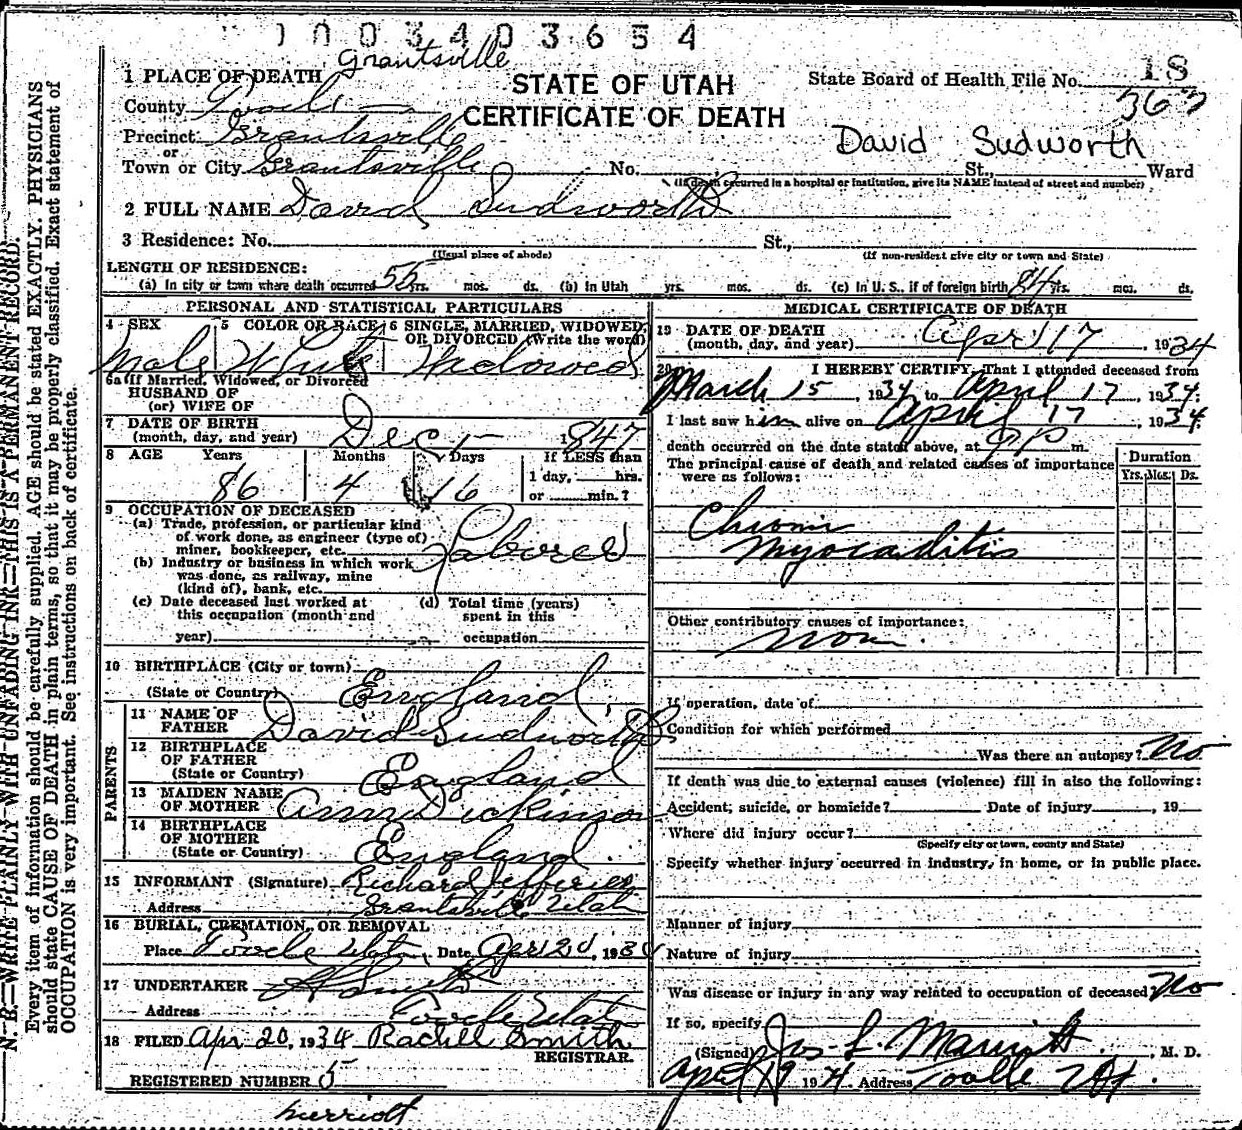 1003403654
Grantsville
1 PLACE OF DEATH
STATE OF UTAH
CERTIFICATE OF DEATH
State Board of Health File No. 18
367
County Tooele
Precinct Grantsville
or
Town or City Grantsville No. St., Ward
David Sudworth
(If death occurred in a hospital or institution, give its NAME instead of street and number)
2 FULL NAME David Sudworth
3 Residence: No. St.,
(Usual place of abode) (If non-resident give city or town and State)
LENGTH OF RESIDENCE:
(a) In city or town where death occurred 55 yrs. mos. ds. (b) In Utah yrs. mos. ds. (c) In U. S., if of foreign birth 84 yrs. mos. ds.
PERSONAL AND STATISTICAL PARTICULARS
4 SEX 5 COLOR OR RACE 6 SINGLE, MARRIED, WIDOWED, OR DIVORCED (Write the word)
Male White Widowed
6a If Married, Widowed, or Divorced
HUSBAND OF
(or) WIFE OF
7 DATE OF BIRTH
(month, day, and year) Dec 1 1847
8 AGE Years Months Days If LESS than
86 4 16 1 day, hrs.
or min.?
9 OCCUPATION OF DECEASED
(a) Trade, profession, or particular kind
of work done, as engineer (type of)
miner, bookkeeper, etc. Laborer
(b) Industry or business in which work
was done, as railway, mine
(kind of), bank, etc.
(c) Date deceased last worked at (d) Total time (years)
this occupation (month and spent in this
year) occupation
10 BIRTHPLACE (City or town)
(State or Country) England
PARENTS
11 NAME OF
FATHER David Sudworth
12 BIRTHPLACE
OF FATHER
(State or Country) England
13 MAIDEN NAME
OF MOTHER Ann Dickinson
14 BIRTHPLACE
OF MOTHER
(State or Country) England
15 INFORMANT (Signature) Richard Jefferies
Address Grantsville Utah
16 BURIAL, CREMATION, OR REMOVAL
Place Tooele Utah Date Apr 20, 1934
17 UNDERTAKER
Address Tooele Utah
18 FILED Apr 20, 1934 Rachel Smith
REGISTRAR.
REGISTERED NUMBER 5
merriott
MEDICAL CERTIFICATE OF DEATH
19 DATE OF DEATH
(month, day, and year) April 17, 1934
20 I HEREBY CERTIFY, That I attended deceased from
March 15, 1934, to April 17, 1934.
I last saw him alive on April 17, 1934.
death occurred on the date stated above, at m.
The principal cause of death and related causes of importance
were as follows:
Duration
Yrs. Mos. Ds.
Chronic
Myocaditis
Other contributory causes of importance:
non
If operation, date of
Condition for which performed
Was there an autopsy? No
If death was due to external causes (violence) fill in also the following:
Accident, suicide, or homicide? Date of injury , 19
Where did injury occur?
(Specify city or town, county and State)
Specify whether injury occurred in industry, in home, or in public place.
Manner of injury
Nature of injury
Was disease or injury in any way related to occupation of deceased No
If so, specify
(Signed) Jos L. , M. D.
April 19 1934 Address Tooele Ut.
N. B.—WRITE PLAINLY WITH UNFADING INK—THIS IS A PERMANENT RECORD.
Every item of information should be carefully supplied. AGE should be stated EXACTLY. PHYSICIANS
should state CAUSE OF DEATH in plain terms, so that it may be properly classified. Exact statement of
OCCUPATION is very important. See instructions on back of certificate.